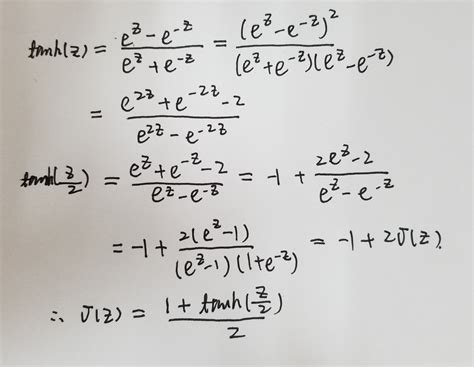 tanh(z) = \frac{e^z - e^{-z}}{e^z + e^{-z}} = \frac{(e^z - e^{-z})^2}{(e^z + e^{-z})(e^z - e^{-z})}
= \frac{e^{2z} + e^{-2z} - 2}{e^{2z} - e^{-2z}}
tanh(\frac{z}{2}) = \frac{e^z + e^{-z} - 2}{e^z - e^{-z}} = -1 + \frac{2e^z - 2}{e^z - e^{-z}}
= -1 + \frac{2(e^z - 1)}{(e^z - 1)(1 + e^{-z})} = -1 + 2σ(z).
∴ σ(z) = \frac{1 + tanh(\frac{z}{2})}{2}